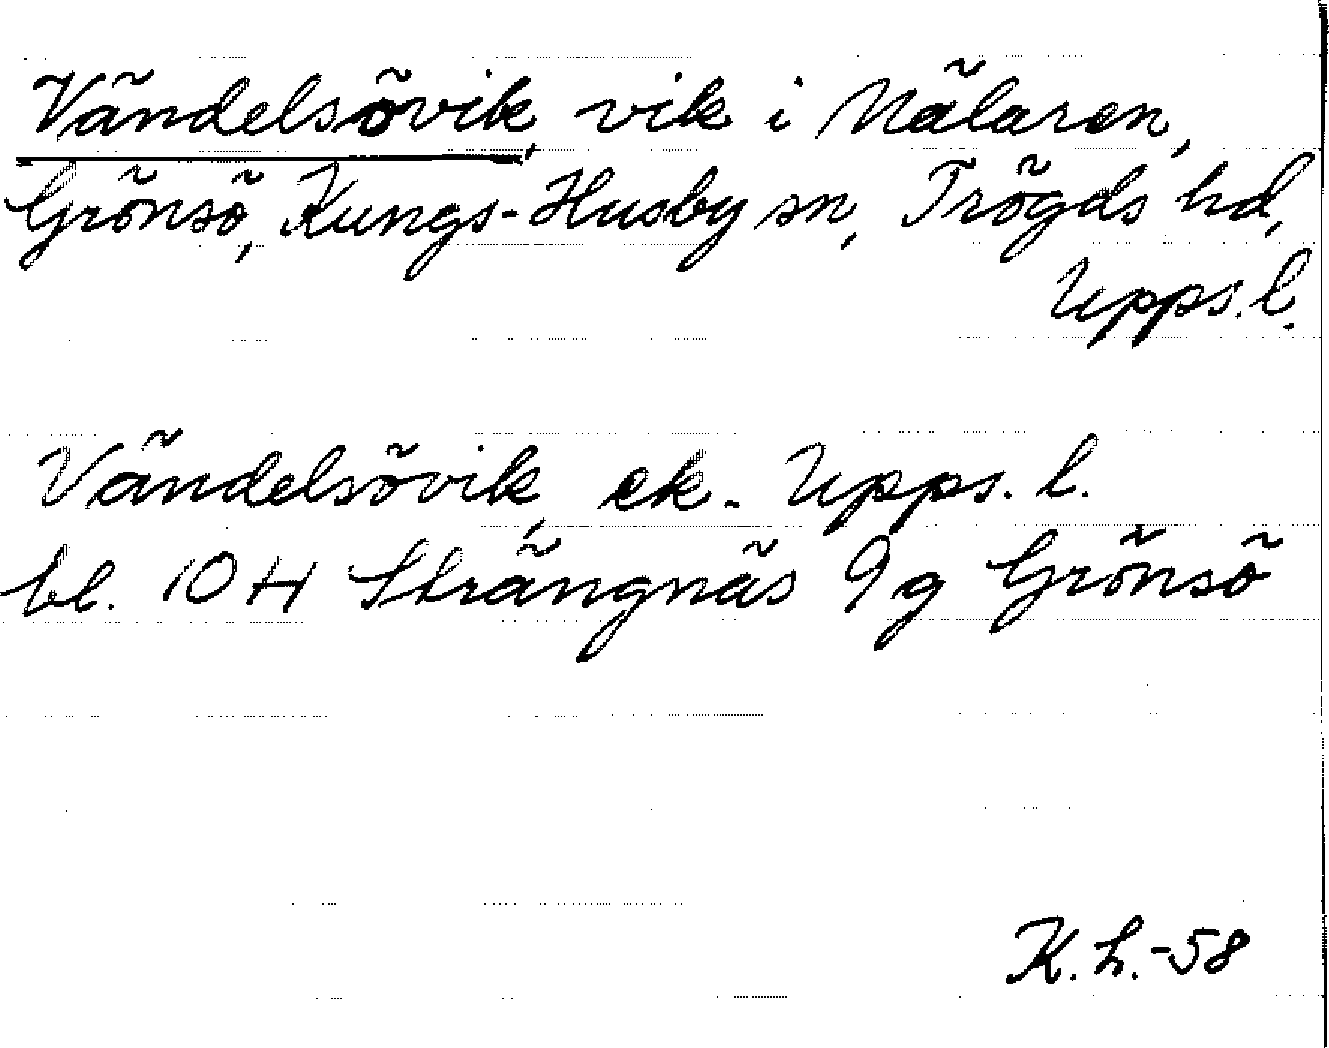 Vändelsövik, vik i Mälaren,
Grönsö, Kungs-Husby sn, Trögds hd,
Upps. l.
Vändelsövik, ek. Upps. l.
bl. 10 H Strängnäs 9 g Grönsö
K. L. -58